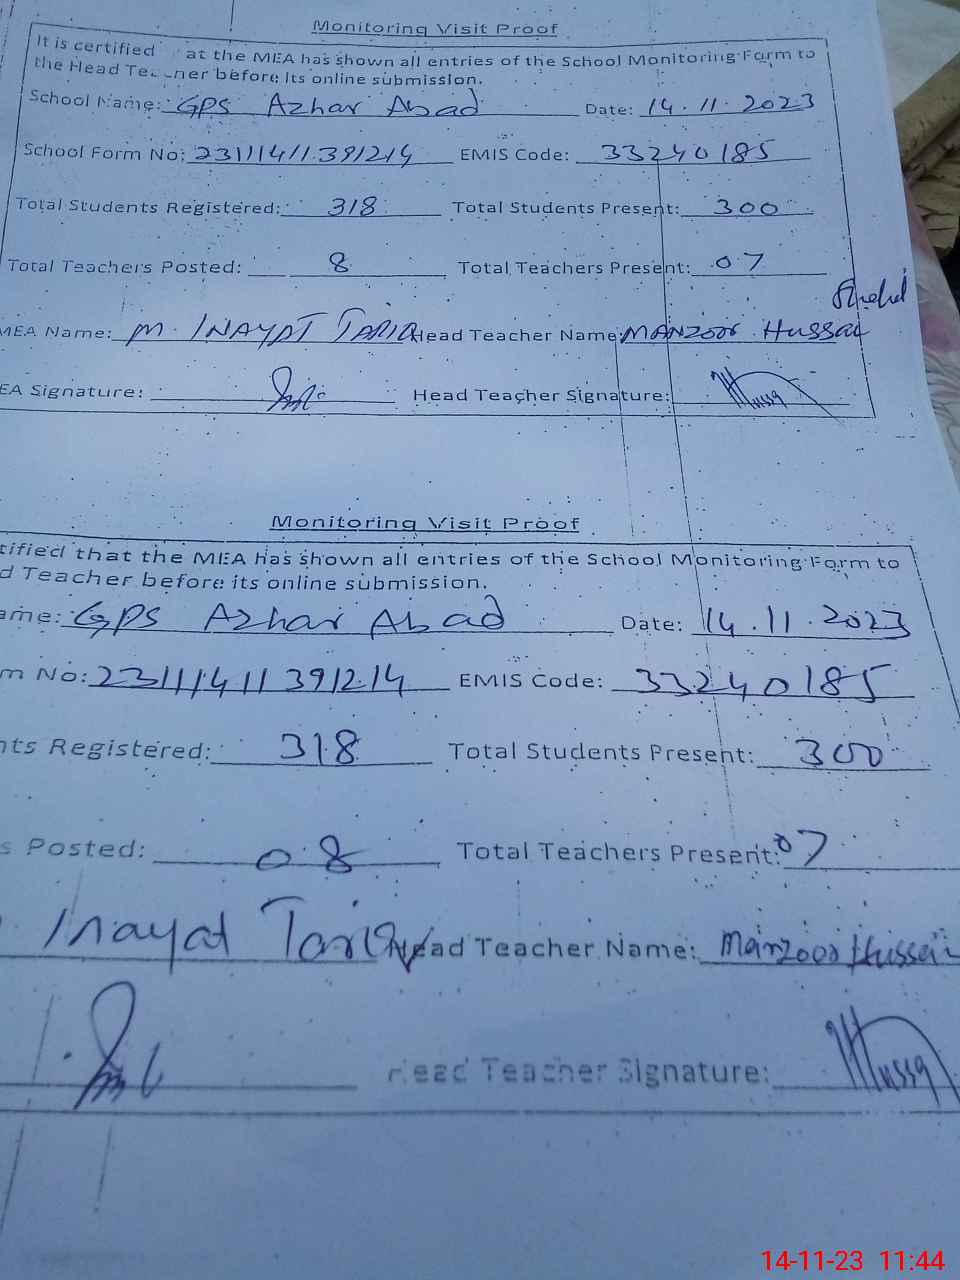 Monitoring Visit Proof
It is certified at the MEA has shown all entries of the School Monitoring Form to
the Head Teacher before its online submission.
School Name: GPS Azhar Abad Date: 14.11.2023
School Form No: 23111411391214 EMIS Code: 33240185
Total Students Registered: 318 Total Students Present: 300
Total Teachers Posted: 8 Total Teachers Present: 07
MEA Name: M. INAYAT TARIQ Head Teacher Name: MANZOOR Hussain
EA Signature: Head Teacher Signature:
Monitoring Visit Proof
tified that the MEA has shown all entries of the School Monitoring Form to
d Teacher before its online submission.
ame: GPS Azhar Abad Date: 14.11.2023
m No: 23111411391214 EMIS Code: 33240185
nts Registered: 318 Total Students Present: 300
s Posted: 08 Total Teachers Present: 07
Inayat Tariq Head Teacher Name: Manzoor Hussain
Head Teacher Signature:
14-11-23 11:44